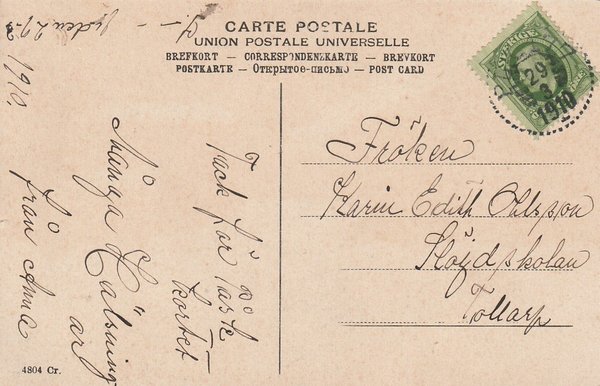 CARTE POSTALE
UNION POSTALE UNIVERSELLE
BREFKORT — CORRESPONDENZKARTE — BREVKORT
POSTKARTE — Открытое-письмо — POST CARD
SVERIGE
29
3
1910
Fröken
Karin Edith Ohlsson
Slöjdskolan
Tollarp
29-3
1910.
Tack för Påsk
kortet
Många Hälsningar
från Anna
4804 Cr.